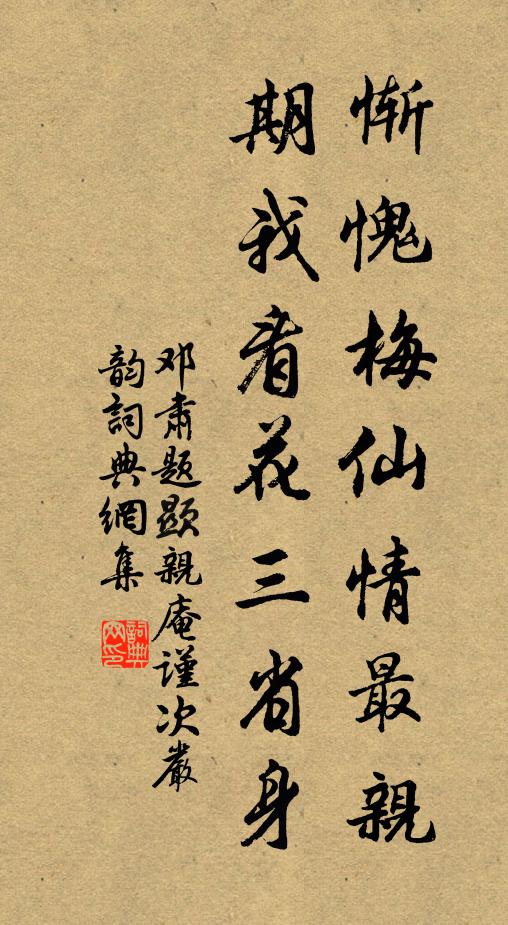 惭愧梅仙情最親
期我看花三省身
邓肃题顯親庵谨次嚴
韵詞典網集
詞典网印